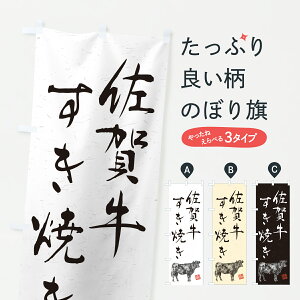 佐賀牛
すき焼き
たっぷり
良い柄
のぼり旗
やったね
えらべる3タイプ
A
B
C
佐賀牛
すき焼き
佐賀牛
すき焼き
佐賀牛
すき焼き